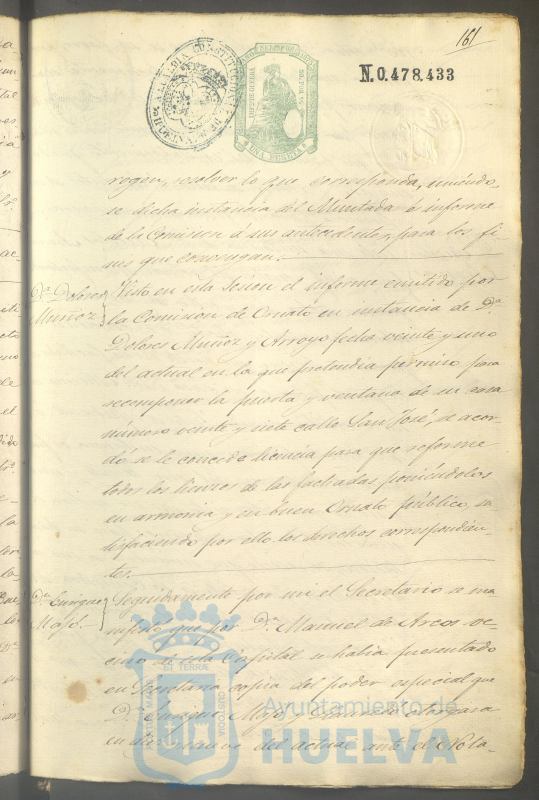 161
N.0.478,433
ALCALDIA CONSTITUCIONAL DE HUELVA
UNA PESETA
rogen, resolver lo que corresponda, uniéndo-
se dicha instancia del Muntada é informe
de la Comision á sus antecedentes, para los fi-
nes que convengan.
Dª Dolores
Muñoz
Visto en esta sesion el informe emitido por
la Comision de Ornato en instancia de Dª
Dolores Muñoz y Arroyo fecha veinte y uno
del actual en la que pretendia permiso para
recomponer la puerta y ventana de su casa
número veinte y siete calle San José, se acor-
dó se le concede licencia para que reforme
todos los huecos de las fachadas poniéndolos
en armonia y en buen Ornato público, sa-
tisfaciendo por ello los derechos correspondien-
tes.
Dn. Enrique
Mojó.
Seguidamente por mi el Secretario se ma-
nifestó que por Dn. Manuel de Arcos ve-
cino de esta Capital se habia presentado
en Secretaria copia del poder especial que
Dn. Enrique Mojó y otorgara
en diez nueve del actual ante el Nota-
Ayuntamiento de
HUELVA